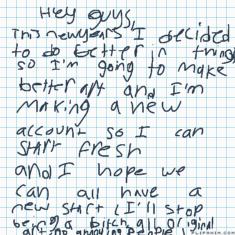 Hey guys,
This new years I decided
to do better in things
so I'm going to make
better art and I'm
making a new
account so I can
start fresh
and I hope we
can all have a
new start (I'll stop
being a bitch all original
art no annoying people)
FLIPANIM.COM